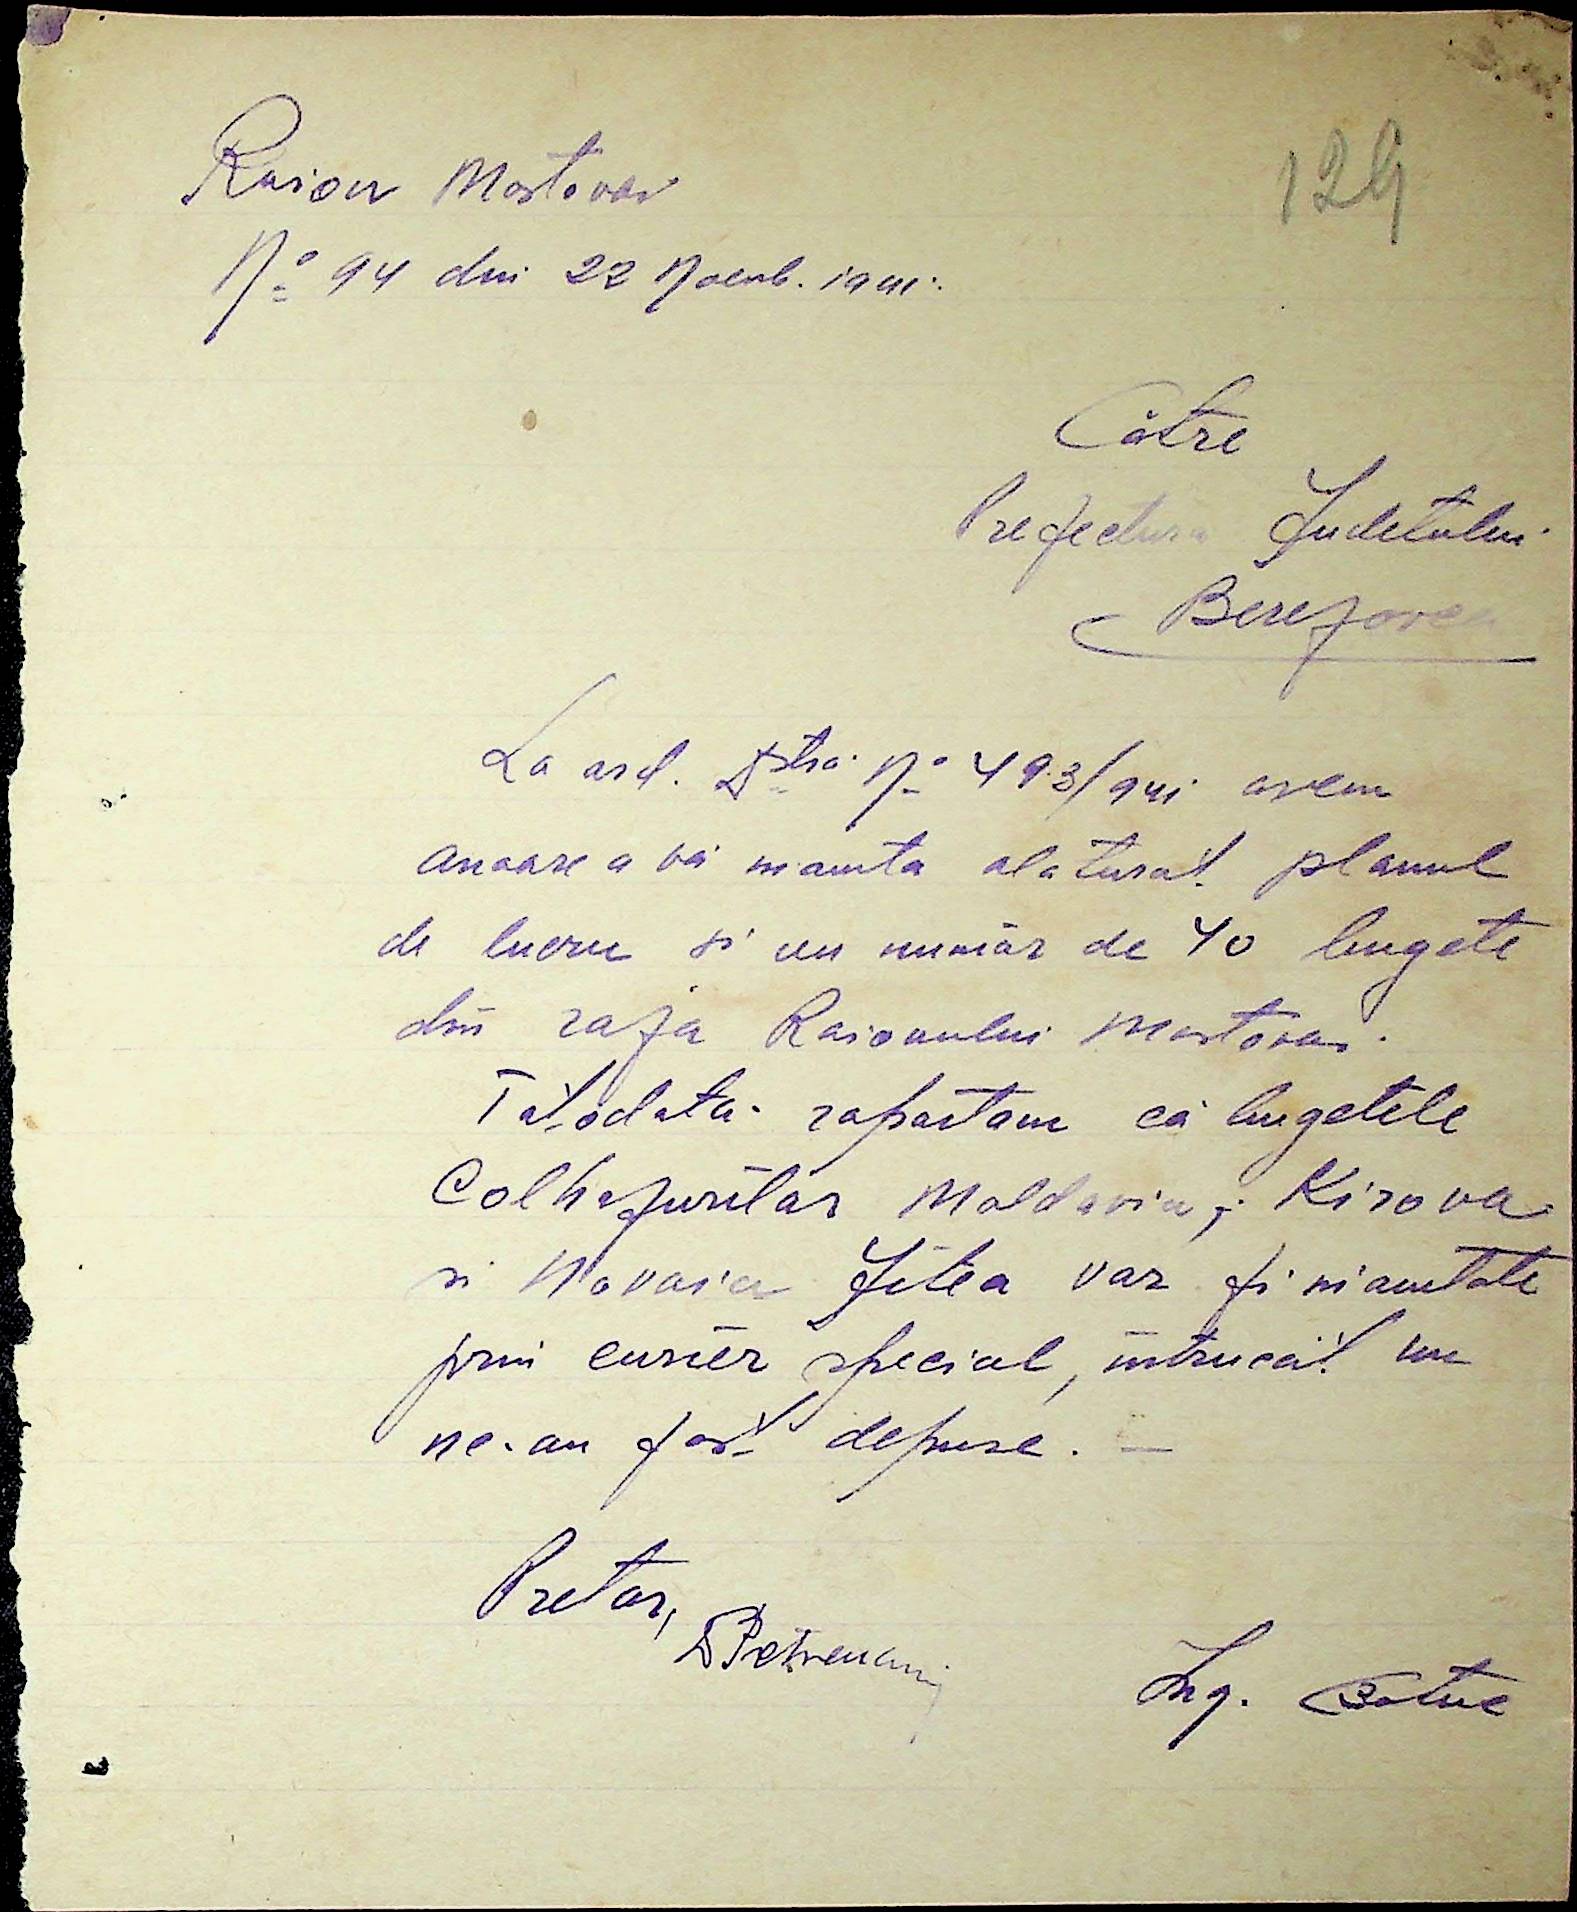 Raion Mostovoi
129
No 94 din 22 Noemb. 1941.
Către
Prefectura Judetului
Berezovca
La ord. Dstra No 493/941 avem
onoare a vă inainta alaturat planul
de lucru si un număr de 40 bugete
din raza Raionului Mostovoi.
Totodata raportam că bugetele
Colhozurilor Moldavia, Kirova
si Novaia Jitea vor fi inaintate
prin curier special, intrucăt nu
ne-au fost depuse. —
Pretor,
D Petreanu
Ing.